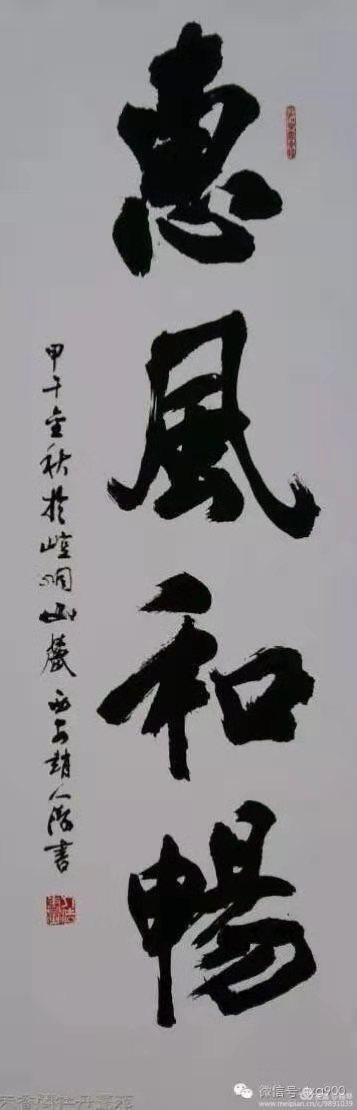 惠風和暢
甲午金秋於崆峒山麓西安趙人浩書
微信号: txg900
www.meipian.cn/c/9891039